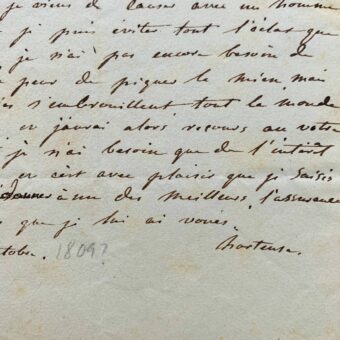 je viens de causer avec un homme
je puis éviter tout l'éclat que
je n'ai pas encore besoin de
peur de piquer le mien, mais
s'embrouillent tout le monde
j'aurai alors recours au votre
je n'ai besoin que de l'intérêt
er cert avec plaisir que je saisis
donner à une des meilleurs, l'assurance
que je lui ai voués
hortense.
tobre. 1809?